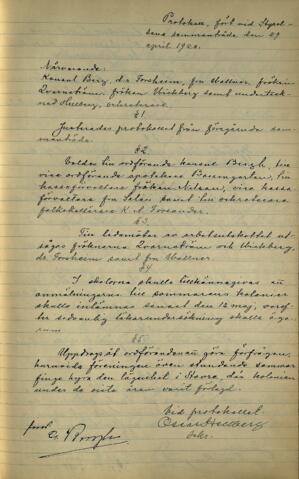 Protokoll, fört vid Styrel-
sens sammanträde den 29
april 1920.
Närvarande:
Konsul Bergh, d:r Forsheim, fru Wallner, fröken
Qvarnström, fröken Wickberg samt undertek-
nad Hellberg, sekreterare.
§1
Justerades protokollet från föregående sam-
manträde.
§2.
Valdes till ordförande konsul Bergh, till
vice ordförande apotekare Baumgarten, till
kassaförvaltare fröken Nilsson, vice kassa
förvaltare fru Selan samt till sekreterare
folkskollärare K. A. Torsander.
§3.
Till ledamöter av arbetsutskottet ut-
sågos fröknarna Qvarnström och Wickberg,
d:r Forsheim samt fru Wallner.
§4
I skolorna skulle tillkännagivas att
anmälningarna till sommarens kolonier
skulle inlämnas senast den 12 maj, varef-
ter sedvanlig läkarundersökning skulle äga
rum.
§5.
Uppdrogs åt ordföranden att göra förfrågan,
huruvida föreningen även stundande sommar
finge hyra den lägenhet i Havra, där kolonien
under de sista åren varit förlagd.
Ved protokollet
Oscar Hellberg
Sekr.
Just.
G. Bergh